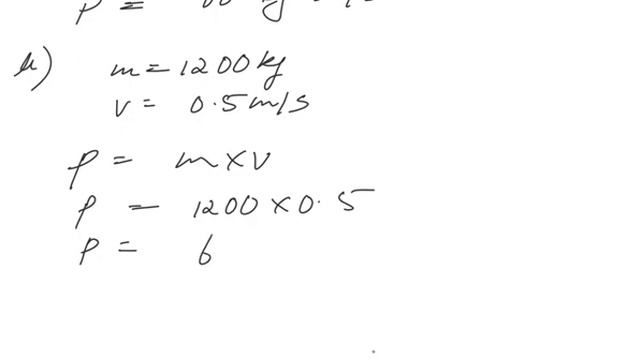 P =
h) m = 1200 kg
v = 0.5 m/s
P = m x v
P = 1200 x 0.5
P = 6